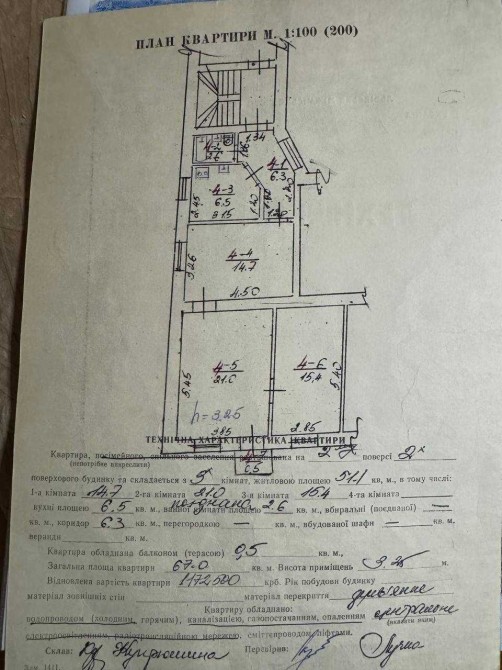 ПЛАН КВАРТИРИ М. 1:100 (200)
1.34
4-1
6.3
2.6
4-3
6.5
3.15
2.45
1.20
1.20
4-4
14.7
3.26
4.50
4-5
21.0
5.45
3.85
h=3.25
4-6
15.4
5.40
2.85
0,5
ТЕХНІЧНА ХАРАКТЕРИСТИКА КВАРТИРИ
Квартира, посімейного, спільного заселення на 2 поверсі 2х
(непотрібне викреслити)
поверхового будинку та складається з 3х кімнат, житловою площею 51.1 кв. м, в тому числі:
1-а кімната 14.7 2-га кімната 21.0 3-я кімната 15.4 4-та кімната
кухні площею 6,5 кв. м, ванної кімнати площею 2.6 кв. м, вбиральні (поєднаної) —
кв. м, коридор 6.3 кв. м, перегородкою — кв. м, вбудованою шафи — кв. м,
веранди кв. м.
Квартира обладнана балконом (терасою) 0,5 кв. м.,
Загальна площа квартири 67.0 кв. м. Висота приміщень 3.25 м.
Відновлена вартість квартири крб. Рік побудови будинку
матеріал зовнішніх стін матеріал перекриття дерев'яне
Квартиру обладнано:
водопроводом (холодним, горячим), каналізацією, газопостачанням, опаленням центральне
(вказати яким)
електроосвітленням, радіотрансляційною мережею, сміттєпроводом, ліфтами.
Склав: Перевірив: